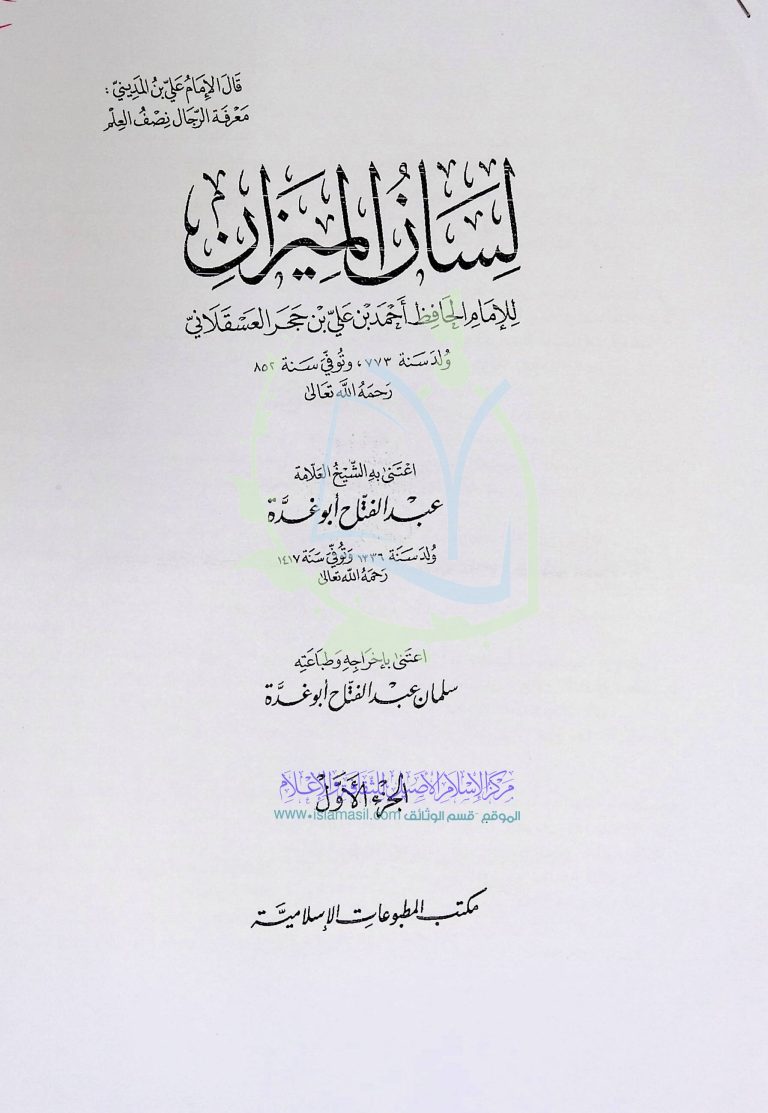 قَالَ الإِمَامُ عَلِيّ بنُ المَدِينِيّ :
مَعْرفَة الرِّجَال نِصْفُ العِلْم
لِسَانُ المِيزَانِ
لِلإمَامِ الحَافِظِ أَحْمَد بْن عَلِيّ بْن حَجَر العَسْقَلَانِيّ
وُلد سَنة ٧٧٣ ، وتُوُفّيَ سَنة ٨٥٢
رَحمَهُ اللَّه تعَالىٰ
اعْتَنىٰ بِهِ الشَّيْخُ العَلّامَة
عبْد الفتّاح أبو غدَّة
وُلدَ سَنَة ١٣٣٦ وَتُوُفّيَ سَنَة ١٤١٧
رَحمَهُ اللَّه تعَالىٰ
اعتَنىٰ بإخرَاجِهِ وَطبَاعَتِه
سلمان عبْد الفتّاح أبو غدَّة
مركز الإسلام الأصيل للثقافة والإعلام
الجزء الأوّل
الموقع - قسم الوثائق www.islamasil.com
مكتب المطبوعات الإسلاميَّة